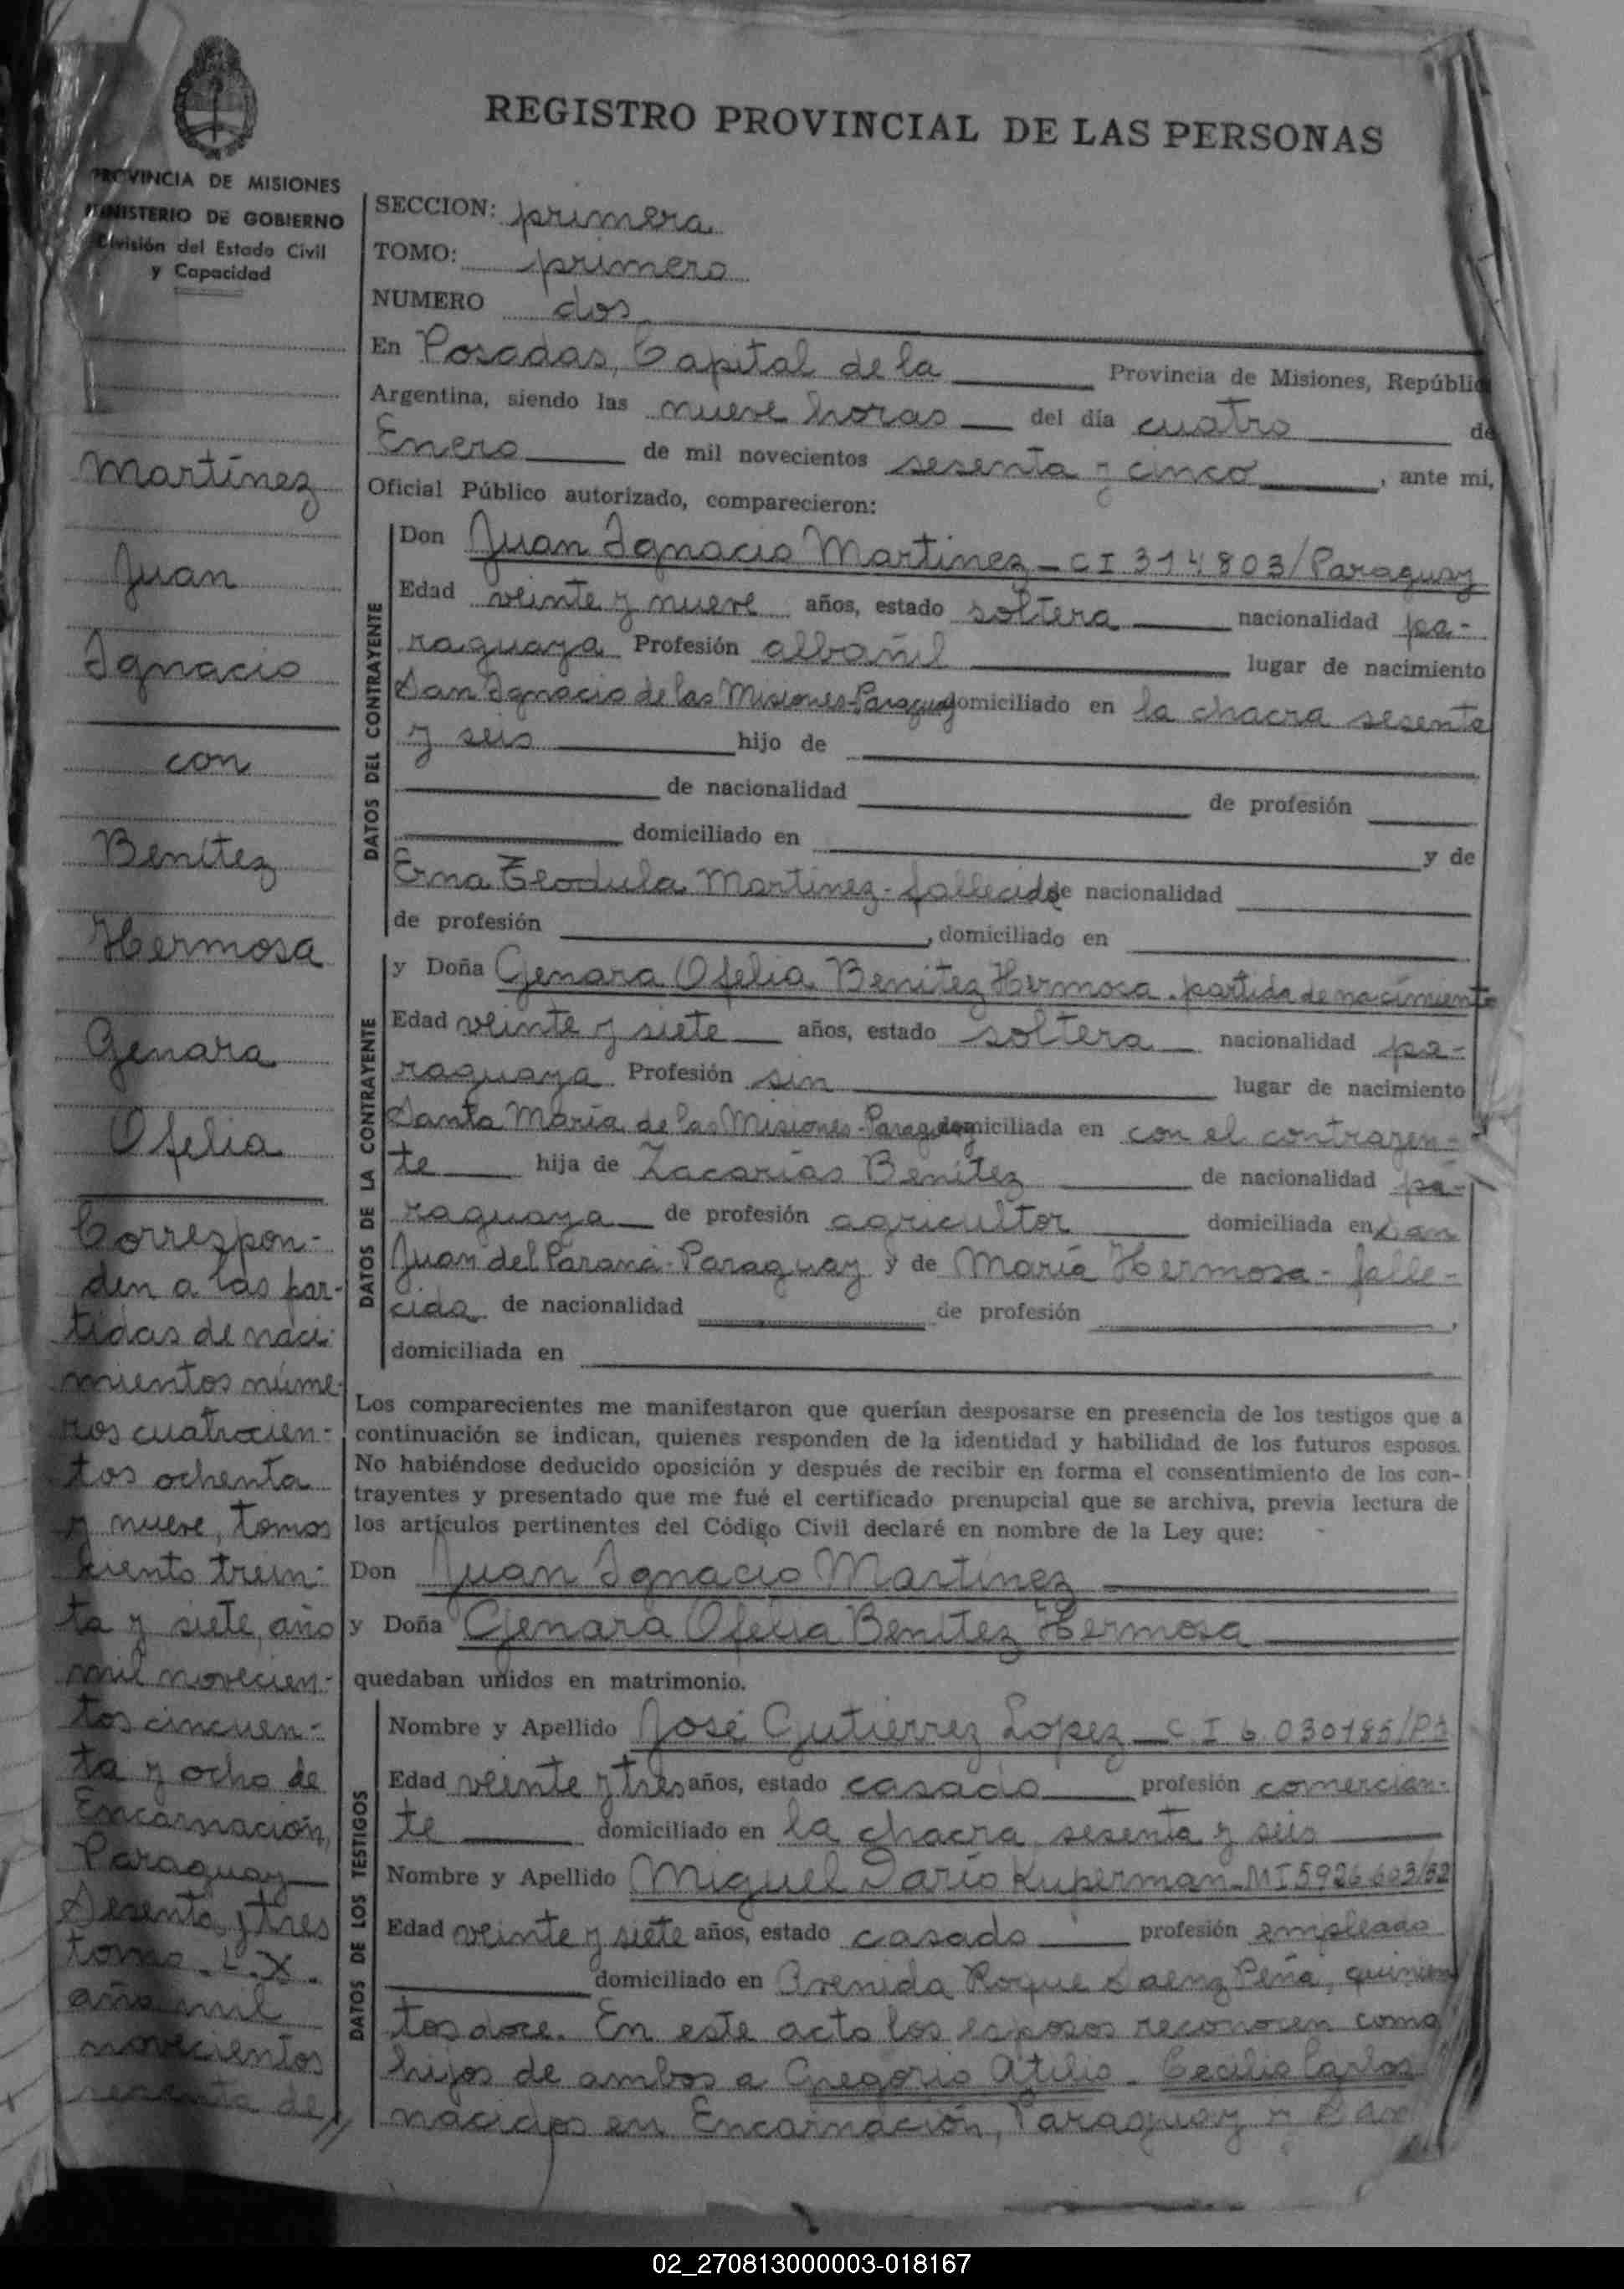 REGISTRO PROVINCIAL DE LAS PERSONAS
PROVINCIA DE MISIONES
MINISTERIO DE GOBIERNO
División del Estado Civil
y Capacidad
Martínez
Juan
Ignacio
con
Benítez
Hermosa
Genara
Ofelia
Correspon-
den a las par-
tidas de naci-
mientos núme-
ros cuatrocien-
tos ochenta
y nueve, tomos
ciento trein-
ta y siete, año
mil novecien-
tos cincuen-
ta y ocho de
Encarnación,
Paraguay
Sesenta y tres
tomo L.X.
año mil
novecientos
sesenta de//
SECCION: primera
TOMO: primero
NUMERO dos
En Posadas, Capital de la Provincia de Misiones, Repúblic
Argentina, siendo las nueve horas del día cuatro de
Enero de mil novecientos sesenta y cinco, ante mi,
Oficial Público autorizado, comparecieron:
DATOS DEL CONTRAYENTE
Don Juan Ignacio Martínez - CI 314803/Paraguay
Edad veinte y nueve años, estado soltera nacionalidad pa-
raguaya Profesión albañil lugar de nacimiento
San Ignacio de las Misiones-Paraguay domiciliado en la chacra sesenta
y seis hijo de
de nacionalidad de profesión
domiciliado en y de
Erna Teodula Martínez - fallecida de nacionalidad
de profesión , domiciliado en
DATOS DE LA CONTRAYENTE
y Doña Genara Ofelia Benítez Hermosa. partida de nacimiento
Edad veinte y siete años, estado soltera nacionalidad pa-
raguaya Profesión sin lugar de nacimiento
Santa María de las Misiones-Paraguay domiciliada en con el contrayen-
te hija de Zacarías Benítez de nacionalidad pa-
raguaya de profesión agricultor domiciliada en San
Juan del Paraná-Paraguay y de María Hermosa - falle-
cida de nacionalidad de profesión ,
domiciliada en
Los comparecientes me manifestaron que querían desposarse en presencia de los testigos que a
continuación se indican, quienes responden de la identidad y habilidad de los futuros esposos.
No habiéndose deducido oposición y después de recibir en forma el consentimiento de los con-
trayentes y presentado que me fué el certificado prenupcial que se archiva, previa lectura de
los artículos pertinentes del Código Civil declaré en nombre de la Ley que:
Don Juan Ignacio Martínez
y Doña Genara Ofelia Benítez Hermosa
quedaban unidos en matrimonio.
DATOS DE LOS TESTIGOS
Nombre y Apellido José Gutiérrez López - C.I 6.030185/
Edad veinte y tres años, estado casado profesión comercian-
te domiciliado en la chacra sesenta y seis
Nombre y Apellido Miguel Darío Kuperman-MI 5926603/52
Edad veinte y siete años, estado casado profesión empleado
domiciliado en Avenida Roque Saenz Peña, quinien
tos doce. En este acto los esposos reconocen como
hijos de ambos a Gregorio Atilio - Cecilio Carlos
nacidos en Encarnación, Paraguay
02_270813000003-018167